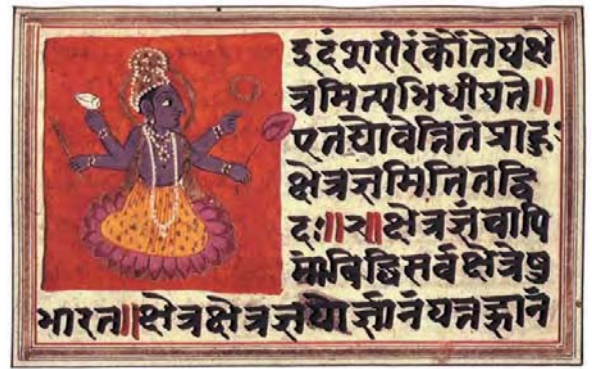 इदंशरीरंकौंतेयक्षे
त्रमित्यभिधीयते॥
एतद्योवेत्तितंप्राहुः
क्षेत्रज्ञमितितद्वि
दः॥२॥क्षेत्रज्ञंचापि
मांविद्धिसर्वक्षेत्रेषु
भारत॥क्षेत्रक्षेत्रज्ञयोर्ज्ञानंयत्तज्ज्ञानं